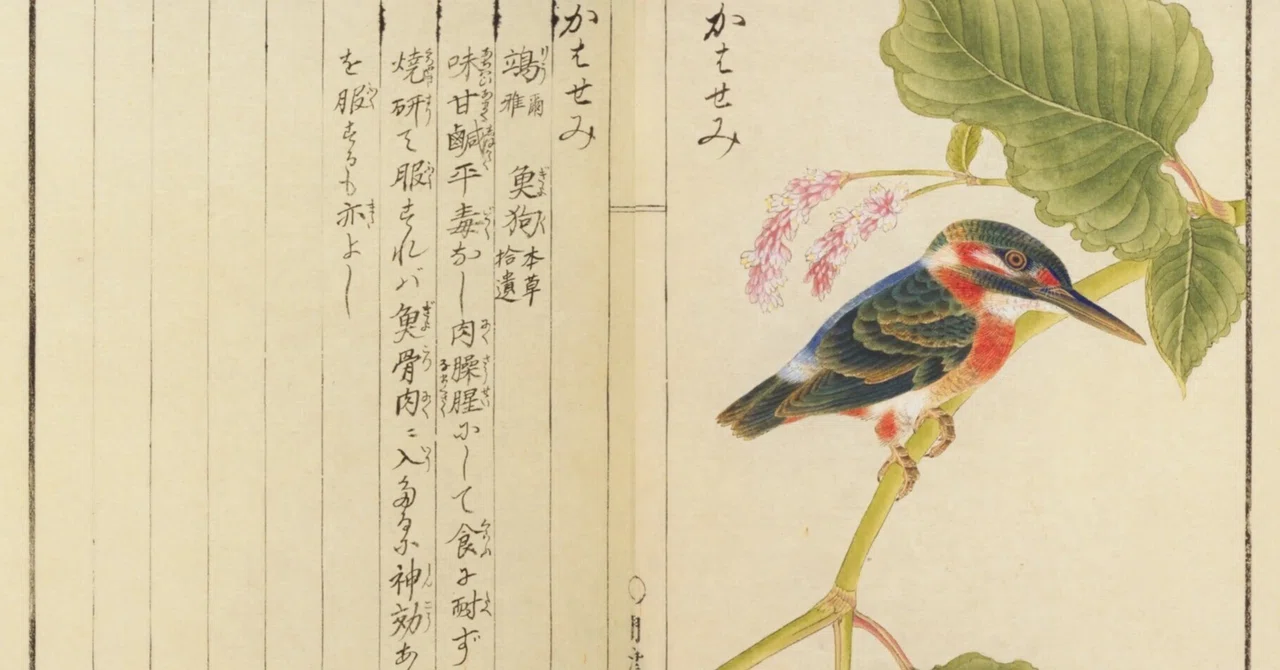 かはせみ
かはせみ
鴗 爾雅 魚狗 本草拾遺
味甘鹹平毒なし肉臊腥にして食に耐ず
焼研て服すれバ魚骨肉ニ入たるに神効あ
を服するも亦よし